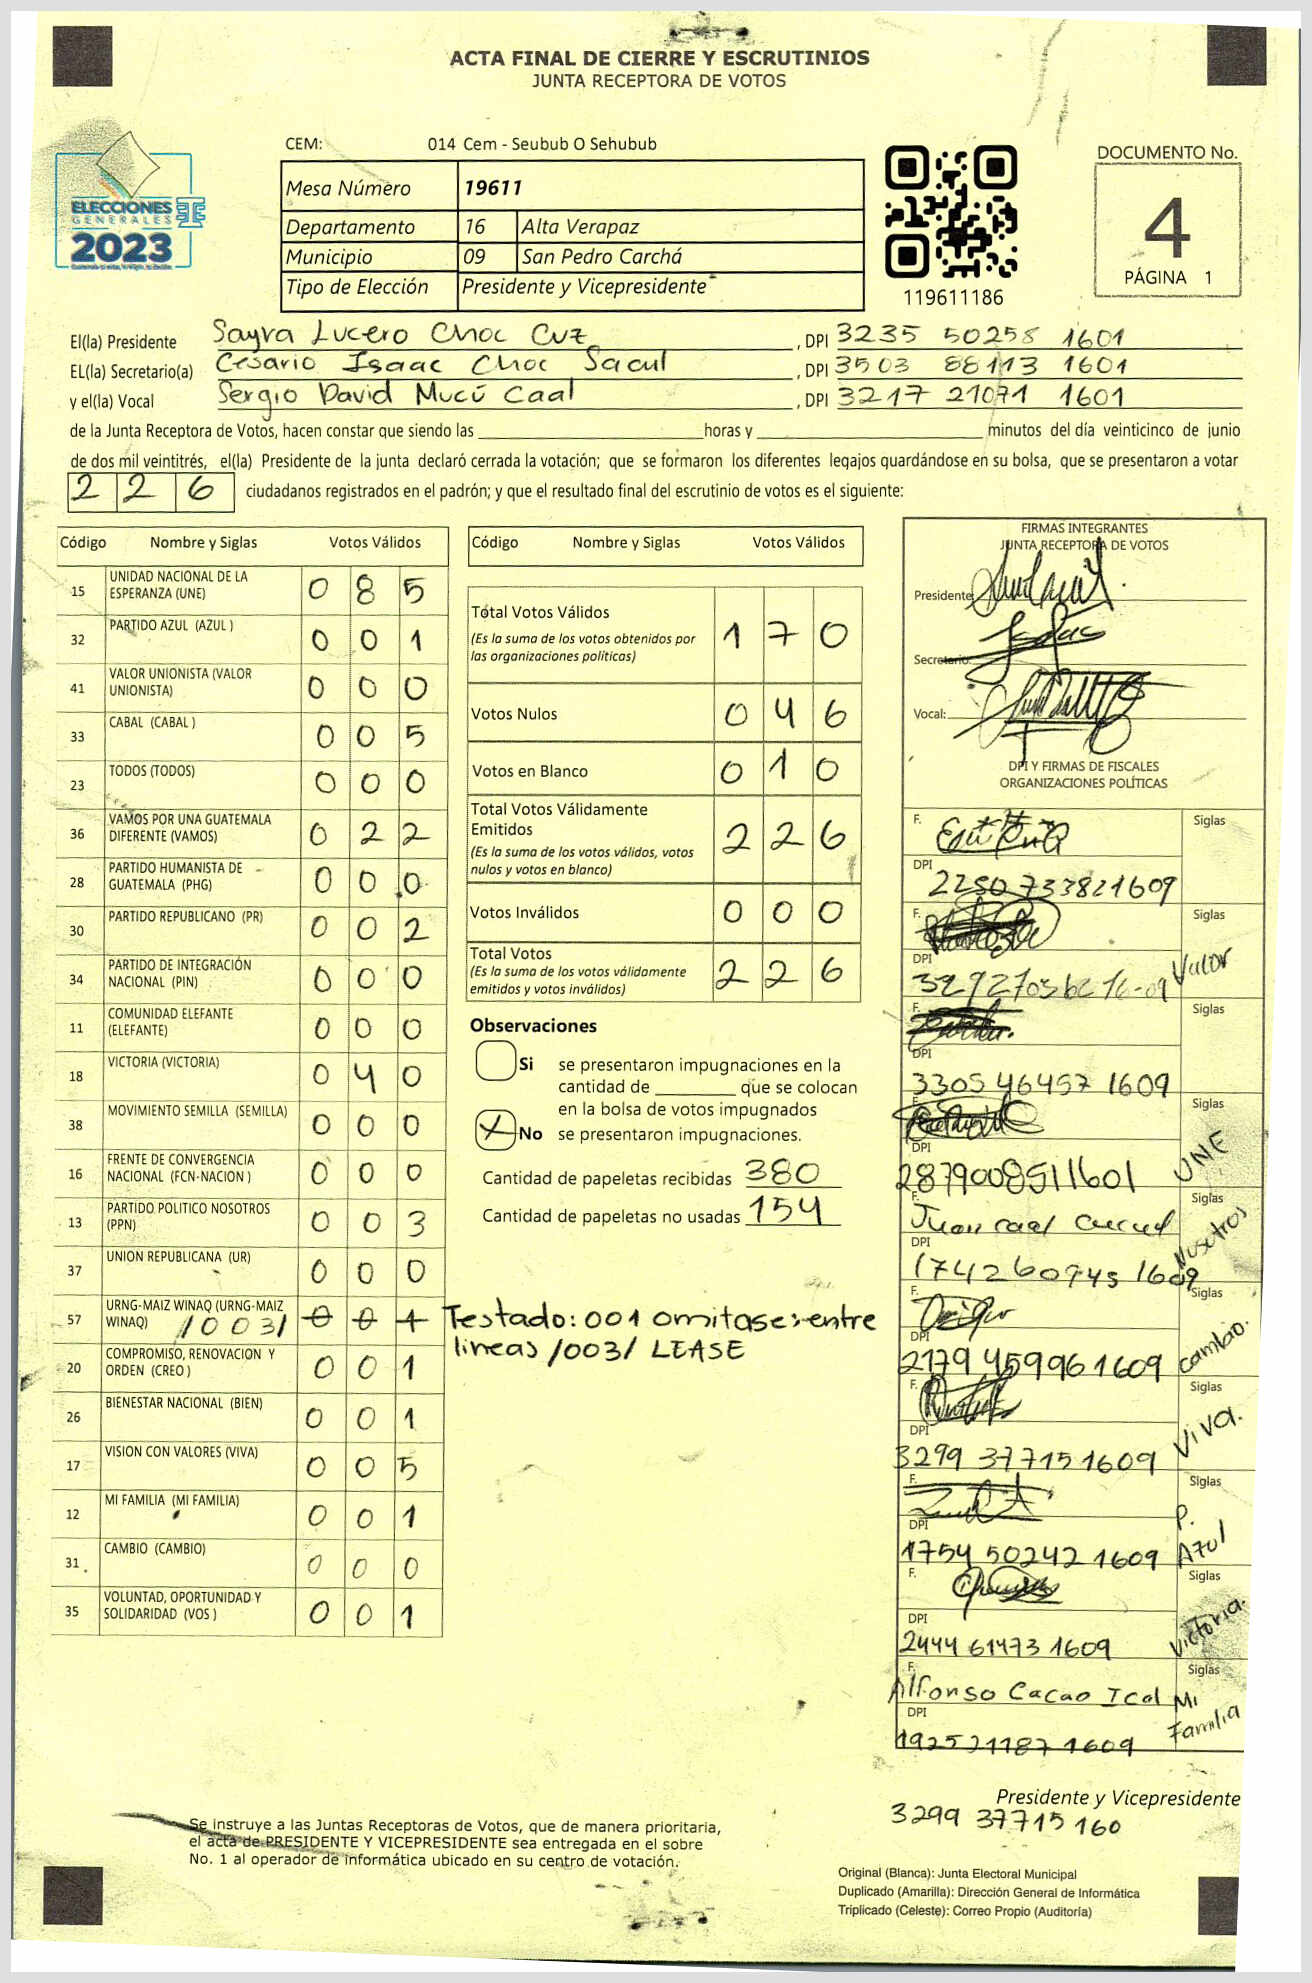 ACTA FINAL DE CIERRE Y ESCRUTINIOS
JUNTA RECEPTORA DE VOTOS
ELECCIONES
GENERALES
2023
CEM: 014 Cem - Seubub O Sehubub
Mesa Número 19611
Departamento 16 Alta Verapaz
Municipio 09 San Pedro Carchá
Tipo de Elección Presidente y Vicepresidente
119611186
DOCUMENTO No.
4
PÁGINA 1
El(la) Presidente Sayra Lucero Choc Cuz, DPI 3235 50258 1601
EL(la) Secretario(a) Cesario Isaac Choc Sacul, DPI 3503 88113 1601
y el(la) Vocal Sergio David Mucú Caal, DPI 3217 21071 1601
de la Junta Receptora de Votos, hacen constar que siendo las horas y minutos del día veinticinco de junio
de dos mil veintitrés, el(la) Presidente de la junta declaró cerrada la votación; que se formaron los diferentes legajos guardándose en su bolsa, que se presentaron a votar
2 2 6 ciudadanos registrados en el padrón; y que el resultado final del escrutinio de votos es el siguiente:
Código Nombre y Siglas Votos Válidos
15 UNIDAD NACIONAL DE LA ESPERANZA (UNE) 0 8 5
32 PARTIDO AZUL (AZUL ) 0 0 1
41 VALOR UNIONISTA (VALOR UNIONISTA) 0 0 0
33 CABAL (CABAL ) 0 0 5
23 TODOS (TODOS) 0 0 0
36 VAMOS POR UNA GUATEMALA DIFERENTE (VAMOS) 0 2 2
28 PARTIDO HUMANISTA DE GUATEMALA (PHG) 0 0 0
30 PARTIDO REPUBLICANO (PR) 0 0 2
34 PARTIDO DE INTEGRACIÓN NACIONAL (PIN) 0 0 0
11 COMUNIDAD ELEFANTE (ELEFANTE) 0 0 0
18 VICTORIA (VICTORIA) 0 4 0
38 MOVIMIENTO SEMILLA (SEMILLA) 0 0 0
16 FRENTE DE CONVERGENCIA NACIONAL (FCN-NACION ) 0 0 0
13 PARTIDO POLITICO NOSOTROS (PPN) 0 0 3
37 UNION REPUBLICANA (UR) 0 0 0
57 URNG-MAIZ WINAQ (URNG-MAIZ WINAQ) /003/ 0 0 1
20 COMPROMISO, RENOVACION Y ORDEN (CREO ) 0 0 1
26 BIENESTAR NACIONAL (BIEN) 0 0 1
17 VISION CON VALORES (VIVA) 0 0 5
12 MI FAMILIA (MI FAMILIA) 0 0 1
31 CAMBIO (CAMBIO) 0 0 0
35 VOLUNTAD, OPORTUNIDAD Y SOLIDARIDAD (VOS ) 0 0 1
Código Nombre y Siglas Votos Válidos
Total Votos Válidos 1 7 0
(Es la suma de los votos obtenidos por
las organizaciones políticas)
Votos Nulos 0 4 6
Votos en Blanco 0 1 0
Total Votos Válidamente
Emitidos 2 2 6
(Es la suma de los votos válidos, votos
nulos y votos en blanco)
Votos Inválidos 0 0 0
Total Votos 2 2 6
(Es la suma de los votos válidamente
emitidos y votos inválidos)
Observaciones
Si se presentaron impugnaciones en la
cantidad de que se colocan
en la bolsa de votos impugnados
X No se presentaron impugnaciones.
Cantidad de papeletas recibidas 380
Cantidad de papeletas no usadas 154
Testado: 001 omitase: entre
lineas /003/ LEASE
FIRMAS INTEGRANTES
JUNTA RECEPTORA DE VOTOS
Presidente:
Secretario:
Vocal:
DPI Y FIRMAS DE FISCALES
ORGANIZACIONES POLÍTICAS
F. Siglas
DPI
2250 733821609
F. Siglas
DPI
Valor
F. Siglas
DPI
3305 46457 1609
F. Siglas
DPI
2879008511601 UNE
F. Siglas
Juan caal
DPI
1742 60945 1609 Nosotros
F. Siglas
DPI
2179 459961609 cambio.
F. Siglas
DPI
3299 37715 1609 VIVA.
F. Siglas
DPI
1754 50242 1609 P. Azul
F. Siglas
DPI
2444 61473 1609 Victoria.
F. Siglas
Alfonso Cacao Ical
DPI
192521187 1609 Mi Familia
Presidente y Vicepresidente
3299 37715 160
Se instruye a las Juntas Receptoras de Votos, que de manera prioritaria,
el acta de PRESIDENTE Y VICEPRESIDENTE sea entregada en el sobre
No. 1 al operador de informática ubicado en su centro de votación.
Original (Blanca): Junta Electoral Municipal
Duplicado (Amarilla): Dirección General de Informática
Triplicado (Celeste): Correo Propio (Auditoría)